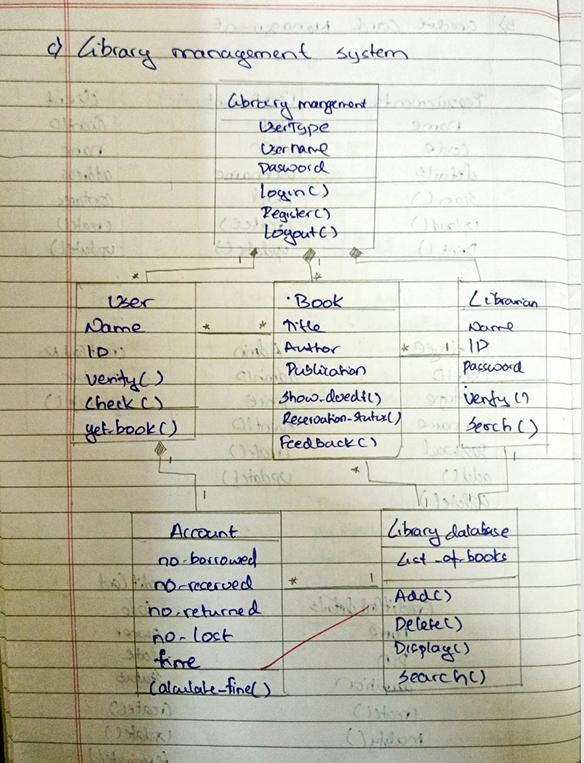 c) Library management system
Library mangement
UserType
Username
Password
login()
Register()
Logout()
1
1
1
*
*
User
Name
ID
verify()
check()
get-book()
* *
Book
Title
Author
Publication
Reservation-status()
Feedback()
* 1
Librarian
Name
ID
Password
Verify()
Serch()
1
1
*
1
Account
no-borrowed
no-reserved
no-returned
no-lost
fine
Calculate-fine()
* 1
Library database
List-of-books
Add()
Delete()
Display()
Search()